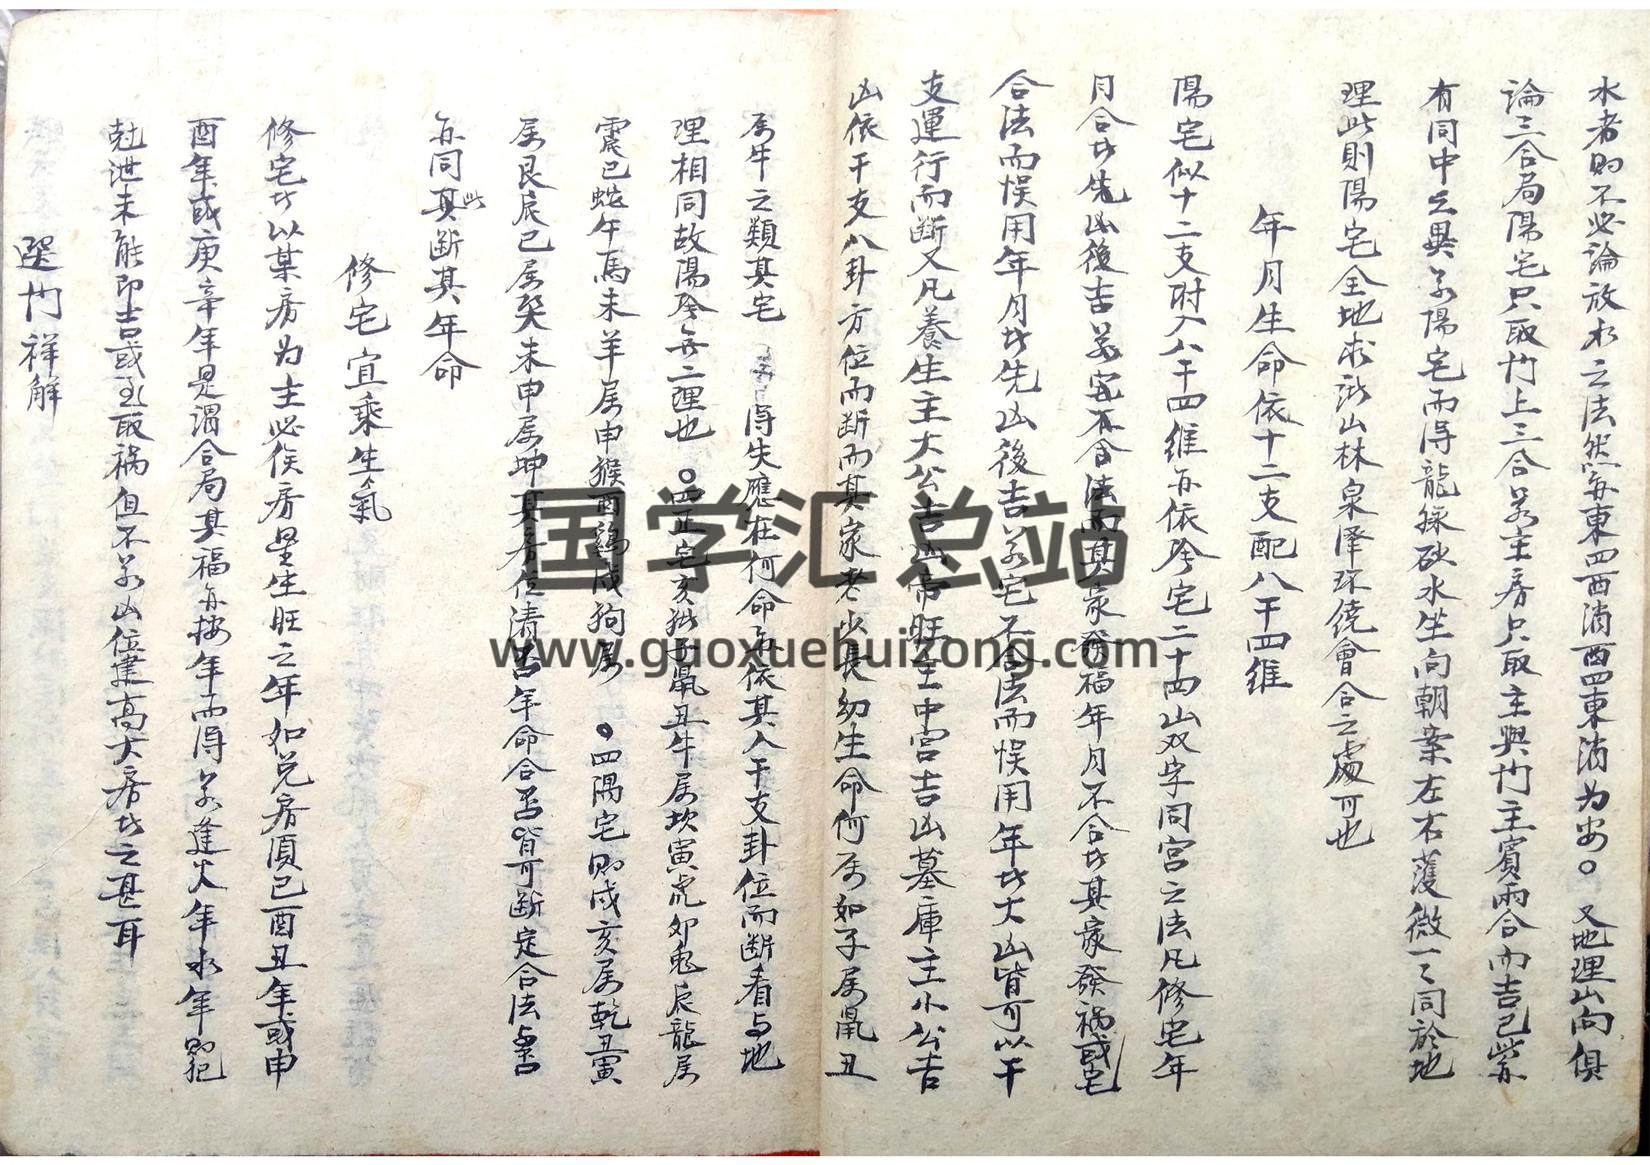 水者則不必論放水之法然寔東四西消西四東消为安。又地理山向俱
論三合局陽宅只取门上三合若主房只取主與门主賓兩合而吉已紫亦
有同中之異今陽宅而得龍脉砂水坐向朝案左右護微一々同於地
理此則陽宅全地求於山林泉澤环繞會合之處可也
年月生命依十二支配八干四維
陽宅似十二支附入八干四維亦依陰宅二十四山双字同宫之法凡修宅年
月合者先凶後吉若宅不合法而其家發福年月不合者其家發禍或宅
合法而悮用年月者先凶後吉若宅不合法而悮用年者大凶皆可以干
支運行而断又凡養生主大公吉凶帝旺主中宫吉凶墓庫主小公吉
凶依干支八卦方位而断而其家老少長幼生命何属如子属鼠丑
属牛之類其宅得失應在何命亦依其八干支卦位而断看与地
理相同故陽陰無二理也。四正宅亥猪子鼠丑牛属坎寅虎卯兔辰龍属
震巳蛇午馬未羊属申猴酉鷄戌狗属。四隅宅則戌亥属乾丑寅
属艮辰巳属巽未申属坤其房位清吉年命合否皆可断定合法与否
亦同此其断其年命
修宅宜乘生氣
修宅者以某房为主必俟房星生旺之年如兑房須巳酉丑年或申
酉年或庚辛年是謂合局其福亦按年而得若逢火年水年則犯
尅泄未能即吉或至取禍但不若凶位建高大房者之甚耳
選门祥解
国学汇总站
www.guoxuehuizong.com